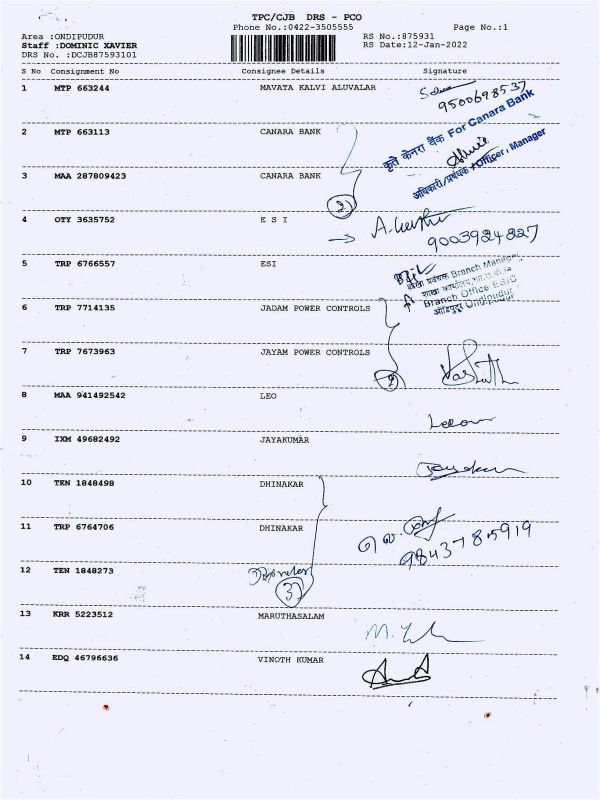 TPC/CJB DRS - PCO
Phone No.:0422-3505555 Page No.:1
Area :ONDIPUDUR RS No.:875931
Staff :DOMINIC XAVIER RS Date:12-Jan-2022
DRS No. :DCJB87593101
S No Consignment No Consignee Details Signature
1 MTP 663244 MAVATA KALVI ALUVALAR
9500698537
2 MTP 663113 CANARA BANK
कृते केनरा बैंक For Canara Bank
अधिकारी/प्रबंधक Officer, Manager
3 MAA 287809423 CANARA BANK
2
4 OTY 3635752 E S I
9003924227
5 TRP 6766557 ESI
शाखा प्रबंधक Branch Manager
शाखा कार्यालय
Branch Office ESIC
Ondipudur
6 TRP 7714135 JADAM POWER CONTROLS
7 TRP 7673963 JAYAM POWER CONTROLS
2
8 MAA 941492542 LEO
9 IXM 49682492 JAYAKUMAR
10 TEN 1848498 DHINAKAR
11 TRP 6764706 DHINAKAR
9843785919
12 TEN 1848273
3
13 KRR 5223512 MARUTHASALAM
14 EDQ 46796636 VINOTH KUMAR